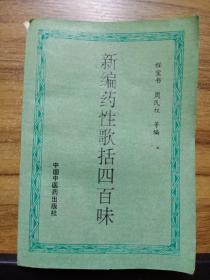 新编药性歌括四百味
程宝书 周民权 等编
中国中医药出版社